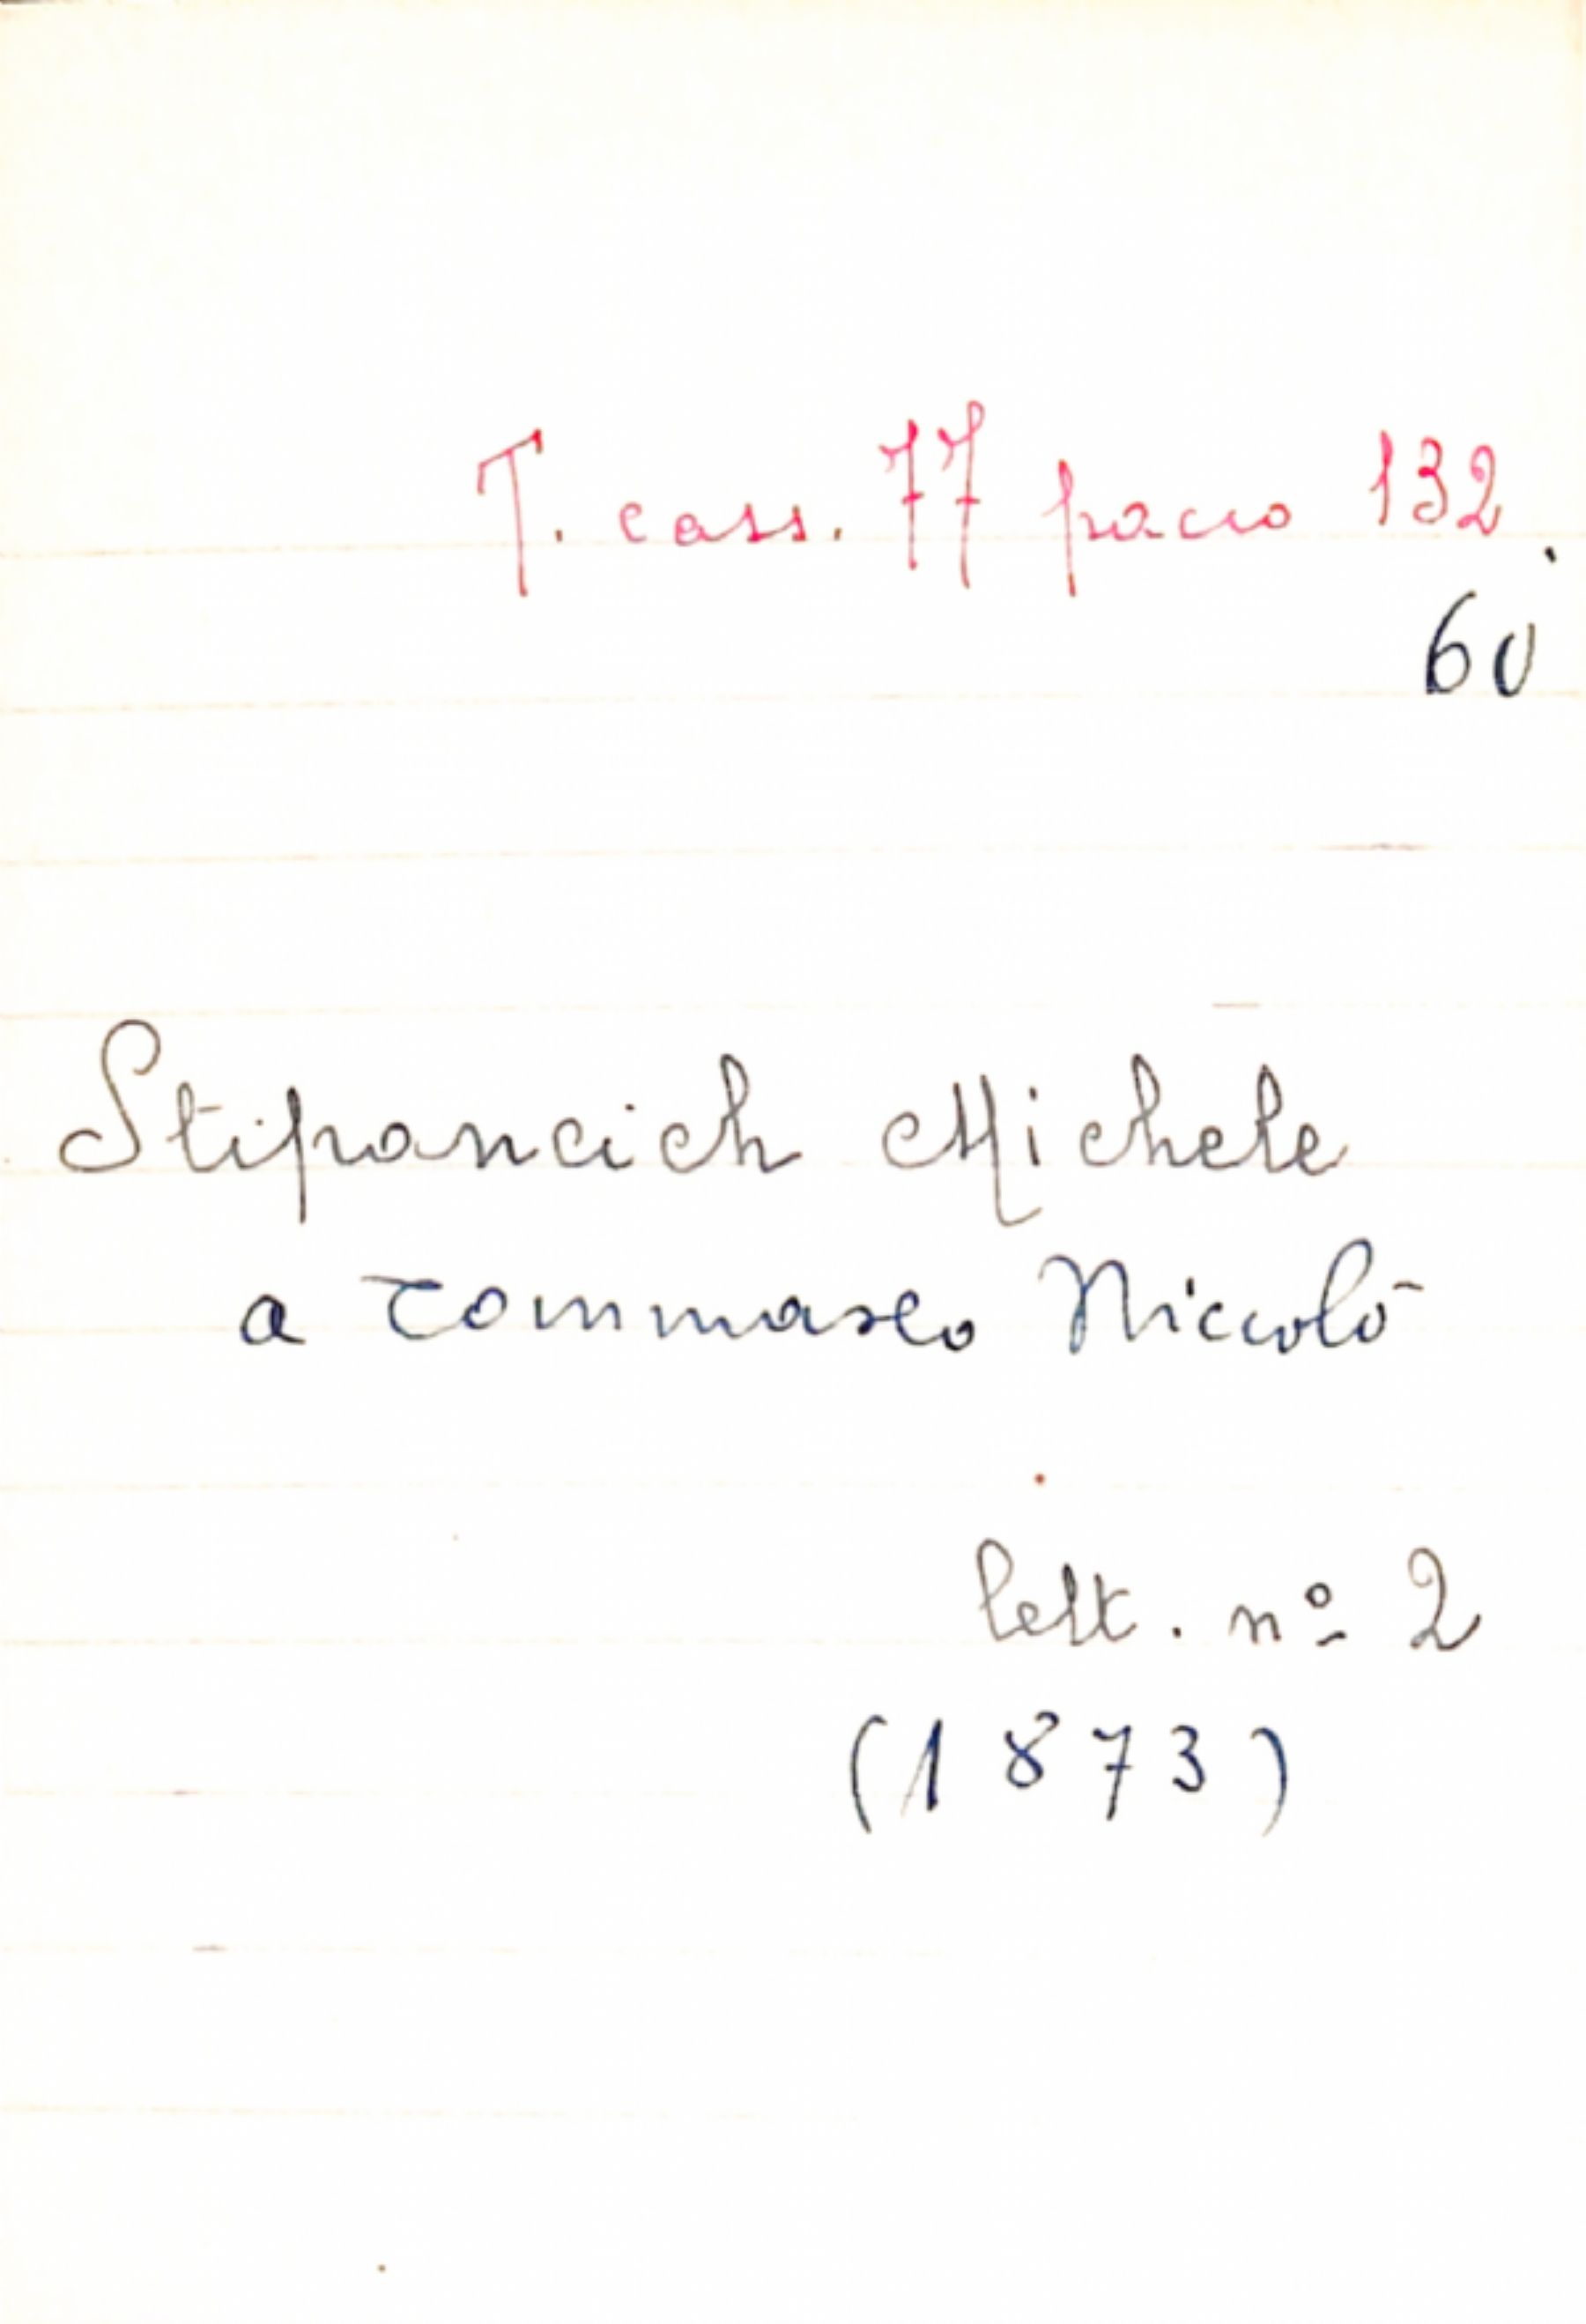 T. cass. 77 pacco 132.
60
Stipancich Michele
a Tommaseo Niccolò
lett. nº 2
(1873)